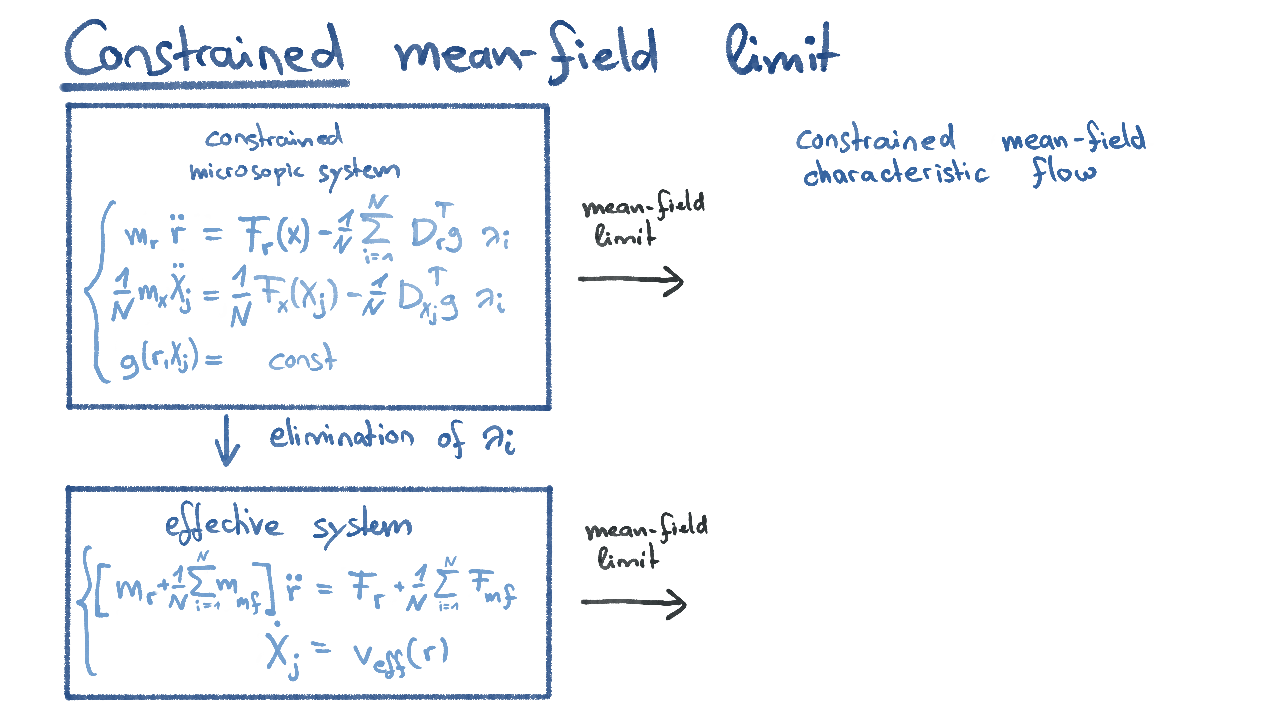 Constrained mean-field limit
constrained
microsopic system
m_r r̈ = F_r(x) - 1/N ∑_{i=1}^N D_r^T g λ_i
1/N m_x Ẍ_j = 1/N F_x(X_j) - 1/N D_{X_j}^T g λ_i
g(r, X_j) = const
mean-field
limit
constrained mean-field
characteristic flow
elimination of λ_i
effective system
[m_r + 1/N ∑_{i=1}^N m_{mf}] r̈ = F_r + 1/N ∑_{i=1}^N F_{mf}
Ẋ_j = v_{eff}(r)
mean-field
limit